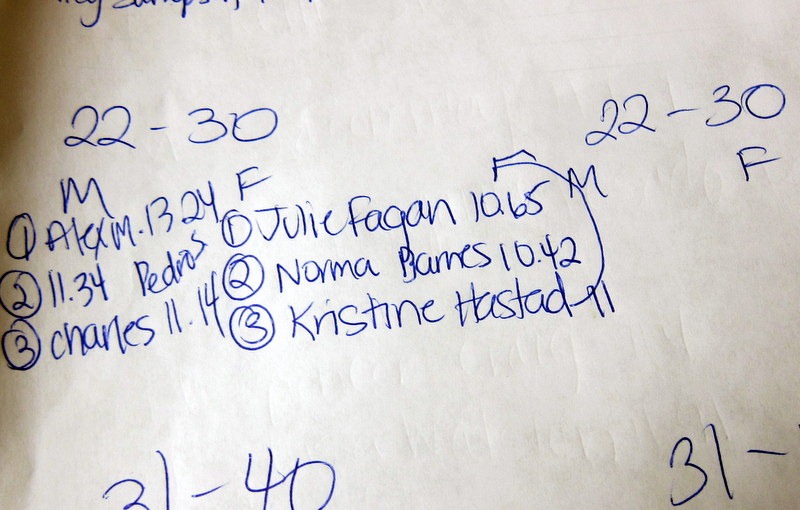 22-30
22-30
M
F
F
M
F
① Alex M. 13.24
① Julie Fagan 10.65
② 11.34 Pedro S
② Norma Barnes 10.42
③ Charles 11.14
③ Kristine Hastad-11
31-40
31-